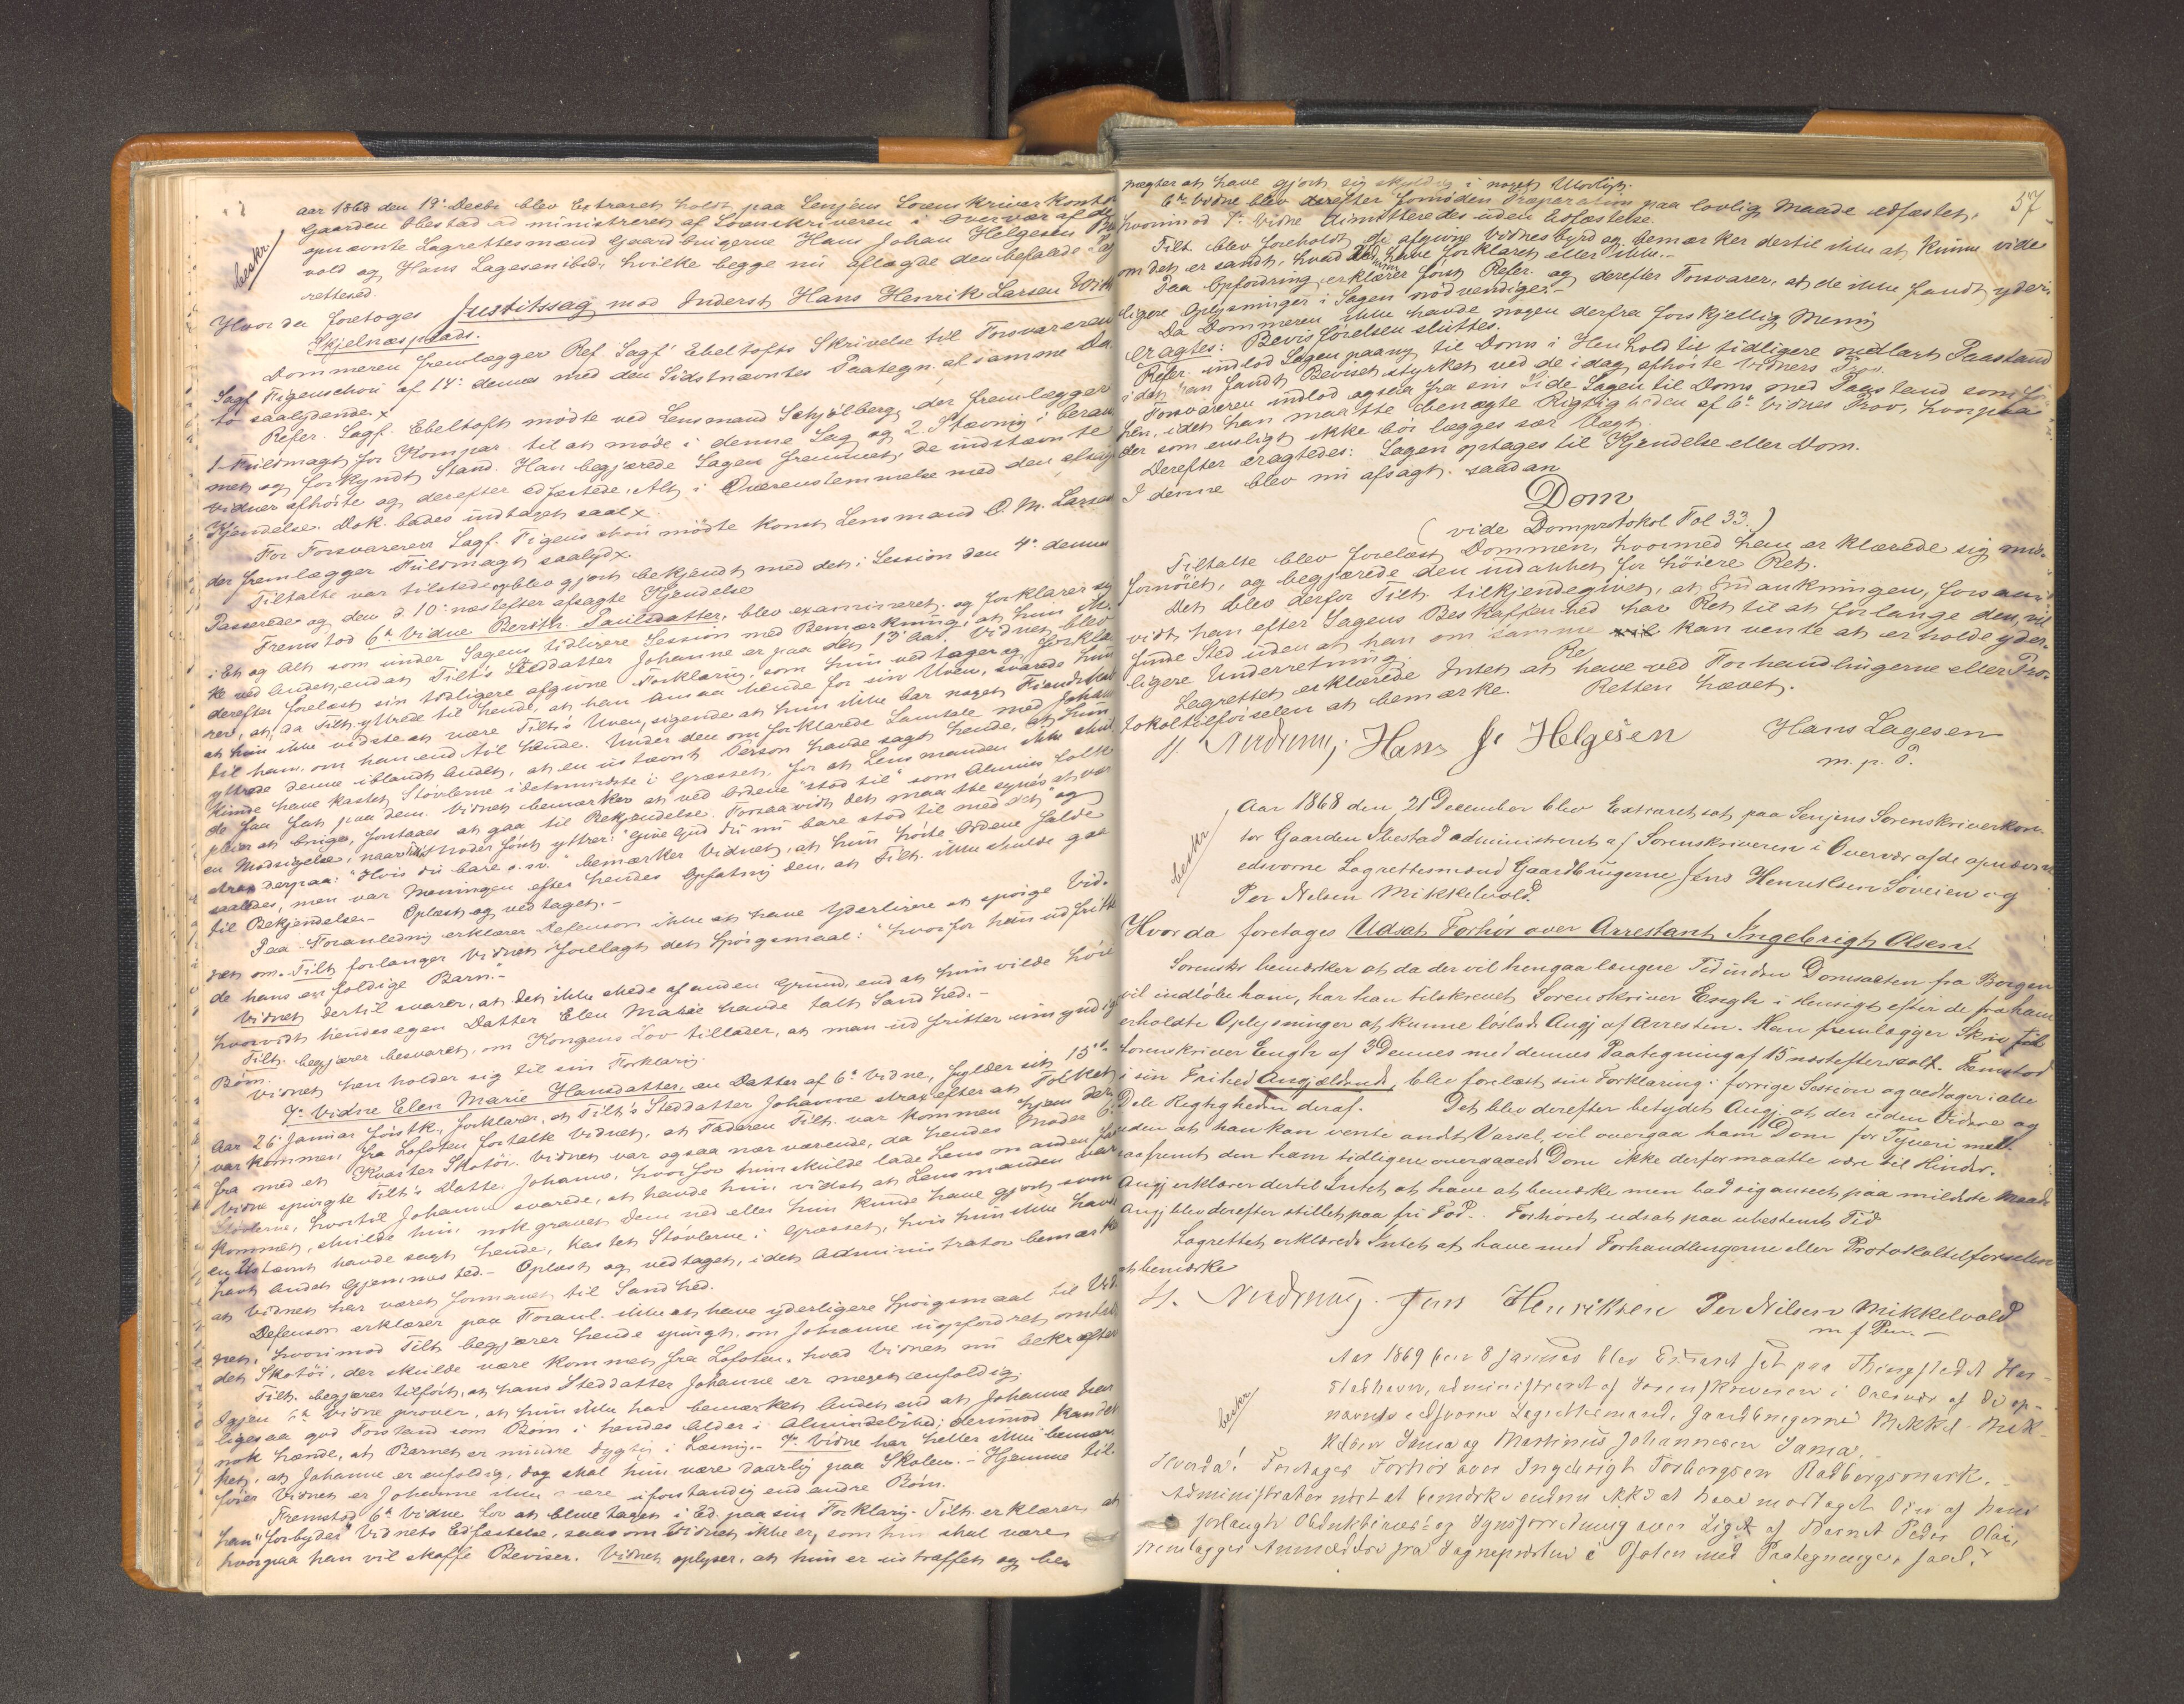 Aar 1868 den 19de Decbr blev Extraret holdt paa Senjens Sorenskriver Konto
Gaarden Ibestad administreret af Sorenskriveren i Overvær af de
opnævnte Lagrettesmænd Gaardbrugerne Hans Johan Helgesen
vold og Hans Lagesen ibid, hvilke begge nu aflagde den befalede Lag
rettesed.
beskr
Hvor da foretoges Justitssag mod Inderst Hans Henrik Larsen
Skjelnæsplads.
Dommeren fremlægger Ref. Sagf. Ebeltofts Skrivelse til Forsvareren
Sagf. Figenschou af 14de dennes med den Sidstnævntes Paategn. af samme Da
to saalydende x
Refer. Sagf. Ebeltoft mødte ved Lensmand Schjølberg der fremlægger
1 Fuldmagt for Kompar. til at møde i denne Sag og 2. Stævning i beram
met og forkyndt Stand. Han begjærede Sagen fremmet, de indstævnte
Vidner afhørte og derefter edfæstede, Alt i Overensstemmelse med den afsagte
Kjendelse. Dok. bades indtaget saal x
For Forsvareren Sagf. Figenschou mødte konst. Lensmand O. M. Larsen
der fremlægger Fuldmagt saalyd x.
Tiltalte var tilstede og blev gjort bekjendt med det i Session den 4de dennes
Passerede og den d 10de næstefter afsagte Kjendelse
Fremstod 6te Vidne Berith Paulsdatter, blev examineret og forklarer sig
i Et og Alt som under Sagens tidligere Session med Bemærkning, at hun ik-
ke ved andet, end at Tilt's Steddatter Johanne er paa det 13de Aar. Vidnet blev
derefter forelæst sin tidligere afgivne Forklaring, som hun vedtager og forkla
rer, at, da Tilt. yttrede til hende, at han ansaa hende for sin Uven, svarede hun
at hun ikke vidste at være Tilt's Uven, sigende at hun ikke bar noget Fiendskab
til ham, om han end til hende. Under den omforklarede Samtale med Johan
yttrede denne iblandt Andet, at en unævnt Person havde sagt hende, at hun
kunde have kastet Støvlerne idetmindste i Græsset, for at Lensmanden ikke skul
de faa fat paa dem. Vidnet bemærker at ved Ordene "stod til" som Almuens Folk
pleier at bruge, forstaaes at gaa til Bekjendelse. Forsaavidt det maatte synes at være
en Modsigelse, naar Vidnet først yttrer: "Give Gud du nu bare stod til med det" og
strax derpaa: "Hvis du bare o. s. v." bemærker Vidnet, at hun hørte Ordene falde
saaledes, men var Meningen efter hendes Opfatning den, at Tilt. ikke skulde gaa
til Bekjendelse. - Oplæst og vedtaget. -
Paa Foranledning erklærer Defensor ikke at have Yderligere at spørge Vid-
net om. Tilt forlanger Vidnet forelagt det Spørgsmaal: "hvorfor hun udfritte
de hans enfoldige Barn". -
Vidnet dertil svarer, at det ikke skede af anden Grund, end at hun vilde høre
hvorvidt hendes egen Datter Elen Marie havde talt Sandhed. -
Tilt. begjærer besvaret, om Kongens Lov tillader, at man udfritter umyndige
Børn.
Vidnet henholder sig til sin Forklaring.
7de Vidne Elen Marie Hansdatter, en Datter af 6te Vidne, fylder sit 15de
Aar 26de Januar førstk., forklarer, at Tilt's Steddatter Johanne strax efter at Folket
var kommen fra Lofoten fortalte Vidnet, at Faderen Tilt. var kommen hjem der
fra med et Kvarter Skotøi. Vidnet var ogsaa nærværende, da hendes Moder 6te
Vidne spurgte Tilt's Datter Johanne, hvorfor hun skulde lade Lensmanden faa
Støvlerne, hvortil Johanne svarede, at havde hun vidst at Lensmanden var
kommen, skulde hun nok gravet dem ned eller hun kunde have gjort som
en Unævnt havde sagt hende, kastet Støvlerne i Græsset, hvis hun ikke havde
havt andet Gjemmested. - Oplæst og vedtaget, idet Administrator bemærker
at Vidnet har været formanet til Sandhed.
Defensor erklærer paa Foranl. ikke at have yderligere Spørgsmaal til Vid-
net, hvorimod Tilt begjærer hende spurgt, om Johanne uopfordret omtalte
det Skotøi, der skulde være kommet fra Lofoten, hvad Vidnet nu bekræfter
Tilt. begjærer tilført, at hans Steddatter Johanne er meget enfoldig
Igjen 6te Vidne prover, at hun ikke har bemærket Andet end at Johanne har
ligesaa god Forstand som Børn i hendes Alder i Almindelighed; derimod kan det
nok hænde, at Barnet er mindre dygtig i Læsning. - 7de Vidne har heller ikke bemær-
ket, at Johanne er enfoldig, dog skal hun være daarlig paa Skolen. - Hjemme til-
føier Vidnet er Johanne ikke mere uforstandig end andre Børn.
Fremstod 6te Vidne for at blive taget i Ed paa sin Forklaring. Tilt. erklærer at
han "forbyder" Vidnets Edfæstelse, saasom Vidnet ikke er, som hun skal være
hvorpaa han vil skaffe Beviser. Vidnet oplyser, at hun er ustraffet og be-
57
nægter at have gjort sig skyldig i noget Utilbørligt.
6te Vidne blev derefter fornøden Præparation paa lovlig Maade edfæstet,
hvorimod 7de Vidne dimitteredes uden Edfæstelse.
Tilt blev foreholdt de afgivne Vidnesbyrd og bemærker dertil ikke at kunne vide
om det er sandt, hvad de have forklaret eller ikke. -
Paa Opfordring erklærer først Refer. og derefter Forsvarer, at de ikke fandt yder-
ligere Oplysninger i Sagen nødvendige. -
Da Dommeren ikke havde nogen derfra forskjellig Mening
eragtes: Bevisførelsen sluttes.
Refer. indlod Sagen paany til Doms i Henhold til tidligere nedlagt Paastand
idet han fandt Beviset styrket ved de idag afhørte Vidners Prov.
Forsvareren indlod ogsaa fra sin Side Sagen til Doms med Paastand som før
hen, idet han maatte benægte Rigtigheden af 6te Vidnes Prov, hvorpaa
der som ensligt ikke bør lægges sær Vægt.
Derefter eragtedes: Sagen optages til Kjendelse eller Dom.
I denne blev nu afsagt saadan
Dom
(vide Domprotokol Fol 33.)
Tiltalte blev forelæst Dommen, hvormed han erklærede sig mis-
fornøiet, og begjærede den indanket for høiere Ret.
Det blev derfor Tilt. tilkjendegivet, at Indankningen, forsaa-
vidt han efter Sagens Beskaffenhed har Ret til at forlange den, vil
finde Sted uden at han om samme kan vente at erholde yder-
ligere Underretning.
Lagrettet erklærede Intet at have ved Forhandlingerne eller Pro-
tokoltilførselen at bemærke. Retten hævet.
Hans J. Helgesen Hans Lagesen
m. p. P.
Aar 1868 den 21 December blev Extraret sat paa Senjens Sorenskriverkon-
tor Gaarden Ibestad administreret af Sorenskriveren i Overvær af de opnævnte
edsvorne Lagrettesmænd Gaardbrugerne Jens Henriksen Søveien og
Per Nilsen Mikkelvold.
beskr
Hvor da foretoges Udsat Forhør over Arrestant Ingebrigt Olsen.
Sorenskr bemærker at da der vil hengaa længere Tid inden Domsacten fra Borgen
vil indløbe ham, har han tilskrevet Sorenskriver Engh i Hensigt efter de fra ham
erholdte Oplysninger at kunne løslade Angj af Arresten. Han fremlægger Skriv til
Sorenskriver Engh af 3 Dennes med dennes Paategning af 15 næstefter saalx. Fremstod
i sin Frihed Angjældende, blev forelæst sin Forklaring i forrige Session og vedtager i alle
Dele Rigtigheden deraf. Det blev derefter betydet Angj. at der uden Videre og
uden at han kan vente andet Varsel, vil overgaa ham Dom for Tyveri med-
saafremt den ham tidligere overgaaede Dom ikke derfor maatte være til Hinder.
Angj erklærer dertil Intet at have at bemærke men bad sig anseet paa mildeste Maade
Angj blev derefter stillet paa fri Fod. Forhøret udsat paa ubestemt Tid
Lagrettet erklærede Intet at have ved Forhandlingerne eller Protokoltilførselen
at bemærke
Jens Henriksen Per Nilsen Mikkelvold
m f Pen. -
Aar 1869 den 8 Januar blev Extraret sat paa Thingstedet Han-
stadhavn, administreret af Sorenskriveren i Overvær af de op-
nævnte edsvorne Lagrettesmænd, Gaardbrugerne Mikkel Mik-
kelsen Sama og Martinus Johannesen Sama.
beskr
Hvorda: Foretages Forhør over Ingebrigt Torbergsen Rødbergsmark.
Administrator
forlangte Obduktions- og Synsforretning over Liget af Barnet Peder Olai,
fremlægges Anmeldelse fra Sognepresten i Ofoten med Paategninger, saal. x